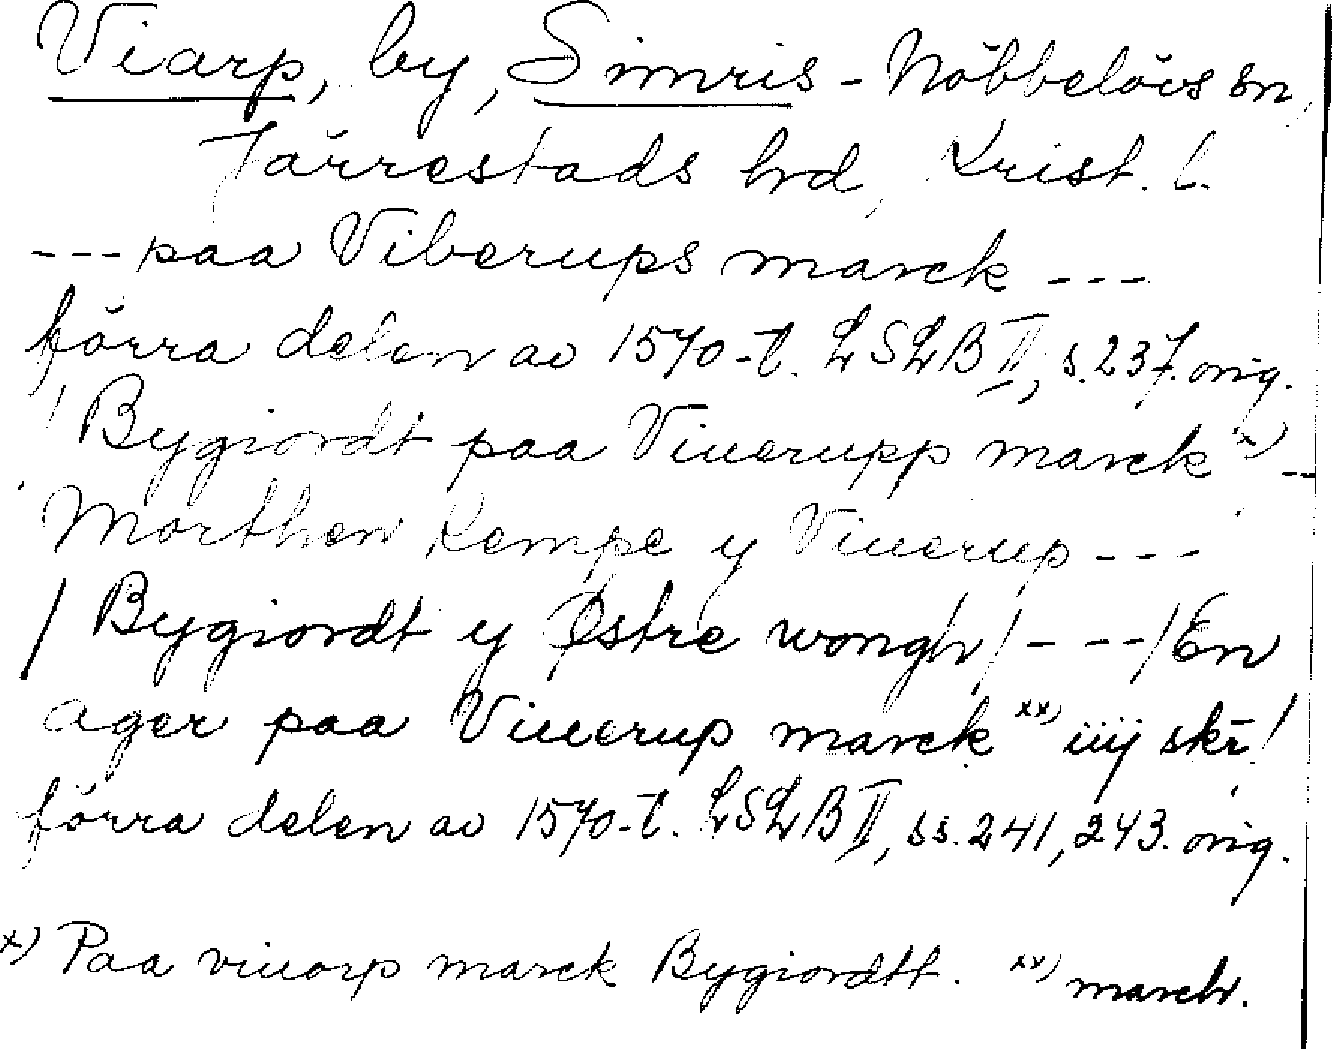 Viarp, by, Simris-Nöbbelövs sn,
Järrestads hrd, Krist. l.
--- paa Viberups marck ---
förra delen av 1570-t. LSLB II, s. 237. orig.
/ Bygiordt paa Viuerupp marck x) --
Morthen Kempe y Viuerup ---
/ Bygiordt y Østre wongh / --- / En
ager paa Viuerup marck xx) iiij skr̄ /
förra delen av 1570-t. LSLB II, ss. 241, 243. orig.
x) Paa viuorp marck Bygiordtt. xx) march.